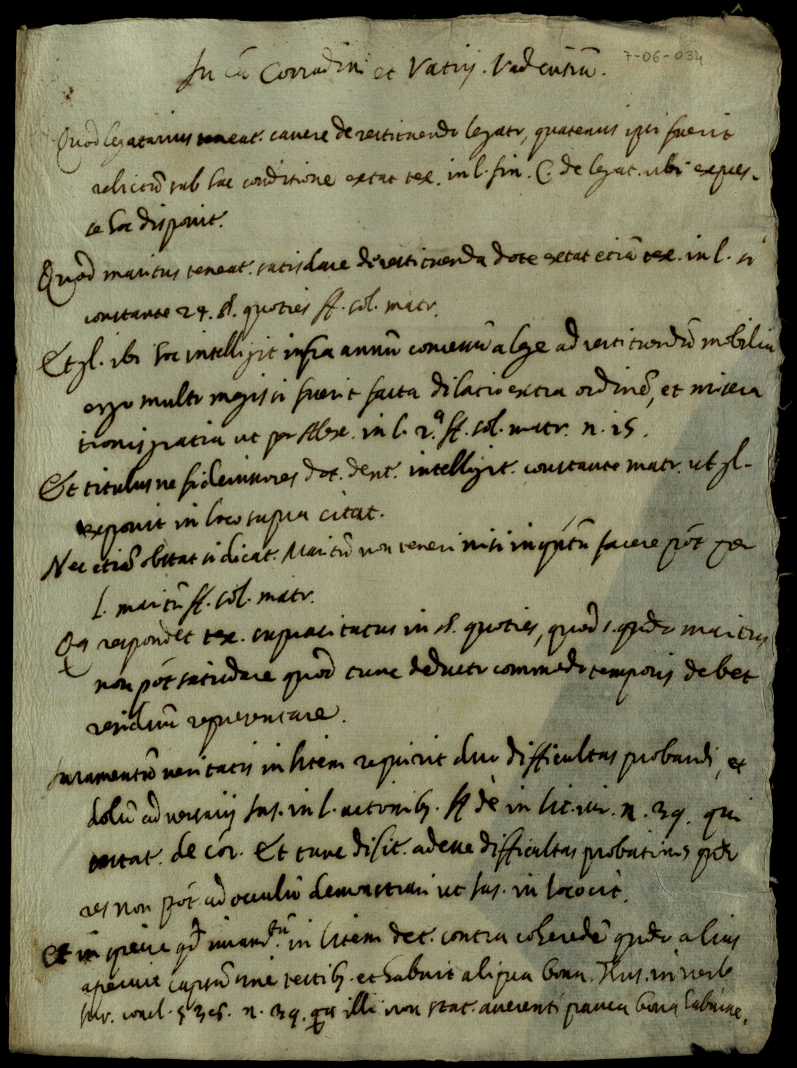 7-06-034
In cã Corradini et Vatij. Vadensiũ.
Quod legatarius teneat. cavere de restituendo legato, quatenus ipsi fuerit
relictũ sub hac conditione extat tex. in l. fin. C. de legat. ubi expres-
se hoc disponit.
Quod maritus teneat. satisdare de restituenda dote extat etiã tex. in l. si
constante 24. §. quoties ff. sol. matr.
Et gl. ibi hoc intelligit infra annũ concessũ a lege ad restituendũ mobilia
ergo multo magis si fuerit facta dilatio extra ordinẽ, et misera
tionis gratia ut per Alex. in l. 2.ª ff. sol. matr. n. 15.
Et titulus ne fideiussores dot. dent. intelligit. constante matr. ut gl.
exponit in loco supra citat.
Nec etiã obstat si dicat. Maritũ non teneri nisi in q̃tũ facere põt per
l. maritũ ff. sol. matr.
Qa respondet tex. supracitatus in §. quoties, quod s. qñdo maritus
non põt satisdare quod tunc deducto commodo temporis debet
residuũ repraesentare.
Iuramentũ veritatis in litem requirit duo difficultas probandi, et
dolũ adversarij Ias. in l. actionib. ff de in lit. iur. n. 39. qui
testat. de cõi. Et tunc dicit. adesse difficultas probationis qñdo
res non põt ad oculũ demonstrari ut Ias. in loco cit.
Et in specie qd iuramtũ in litem det. contra coheredẽ qñdo alius
aperuit capsũ sine testib. et habuit aliqua bona.
iur. concl. n. 39. qa illi non stat. asserenti pauca bona habuisse.